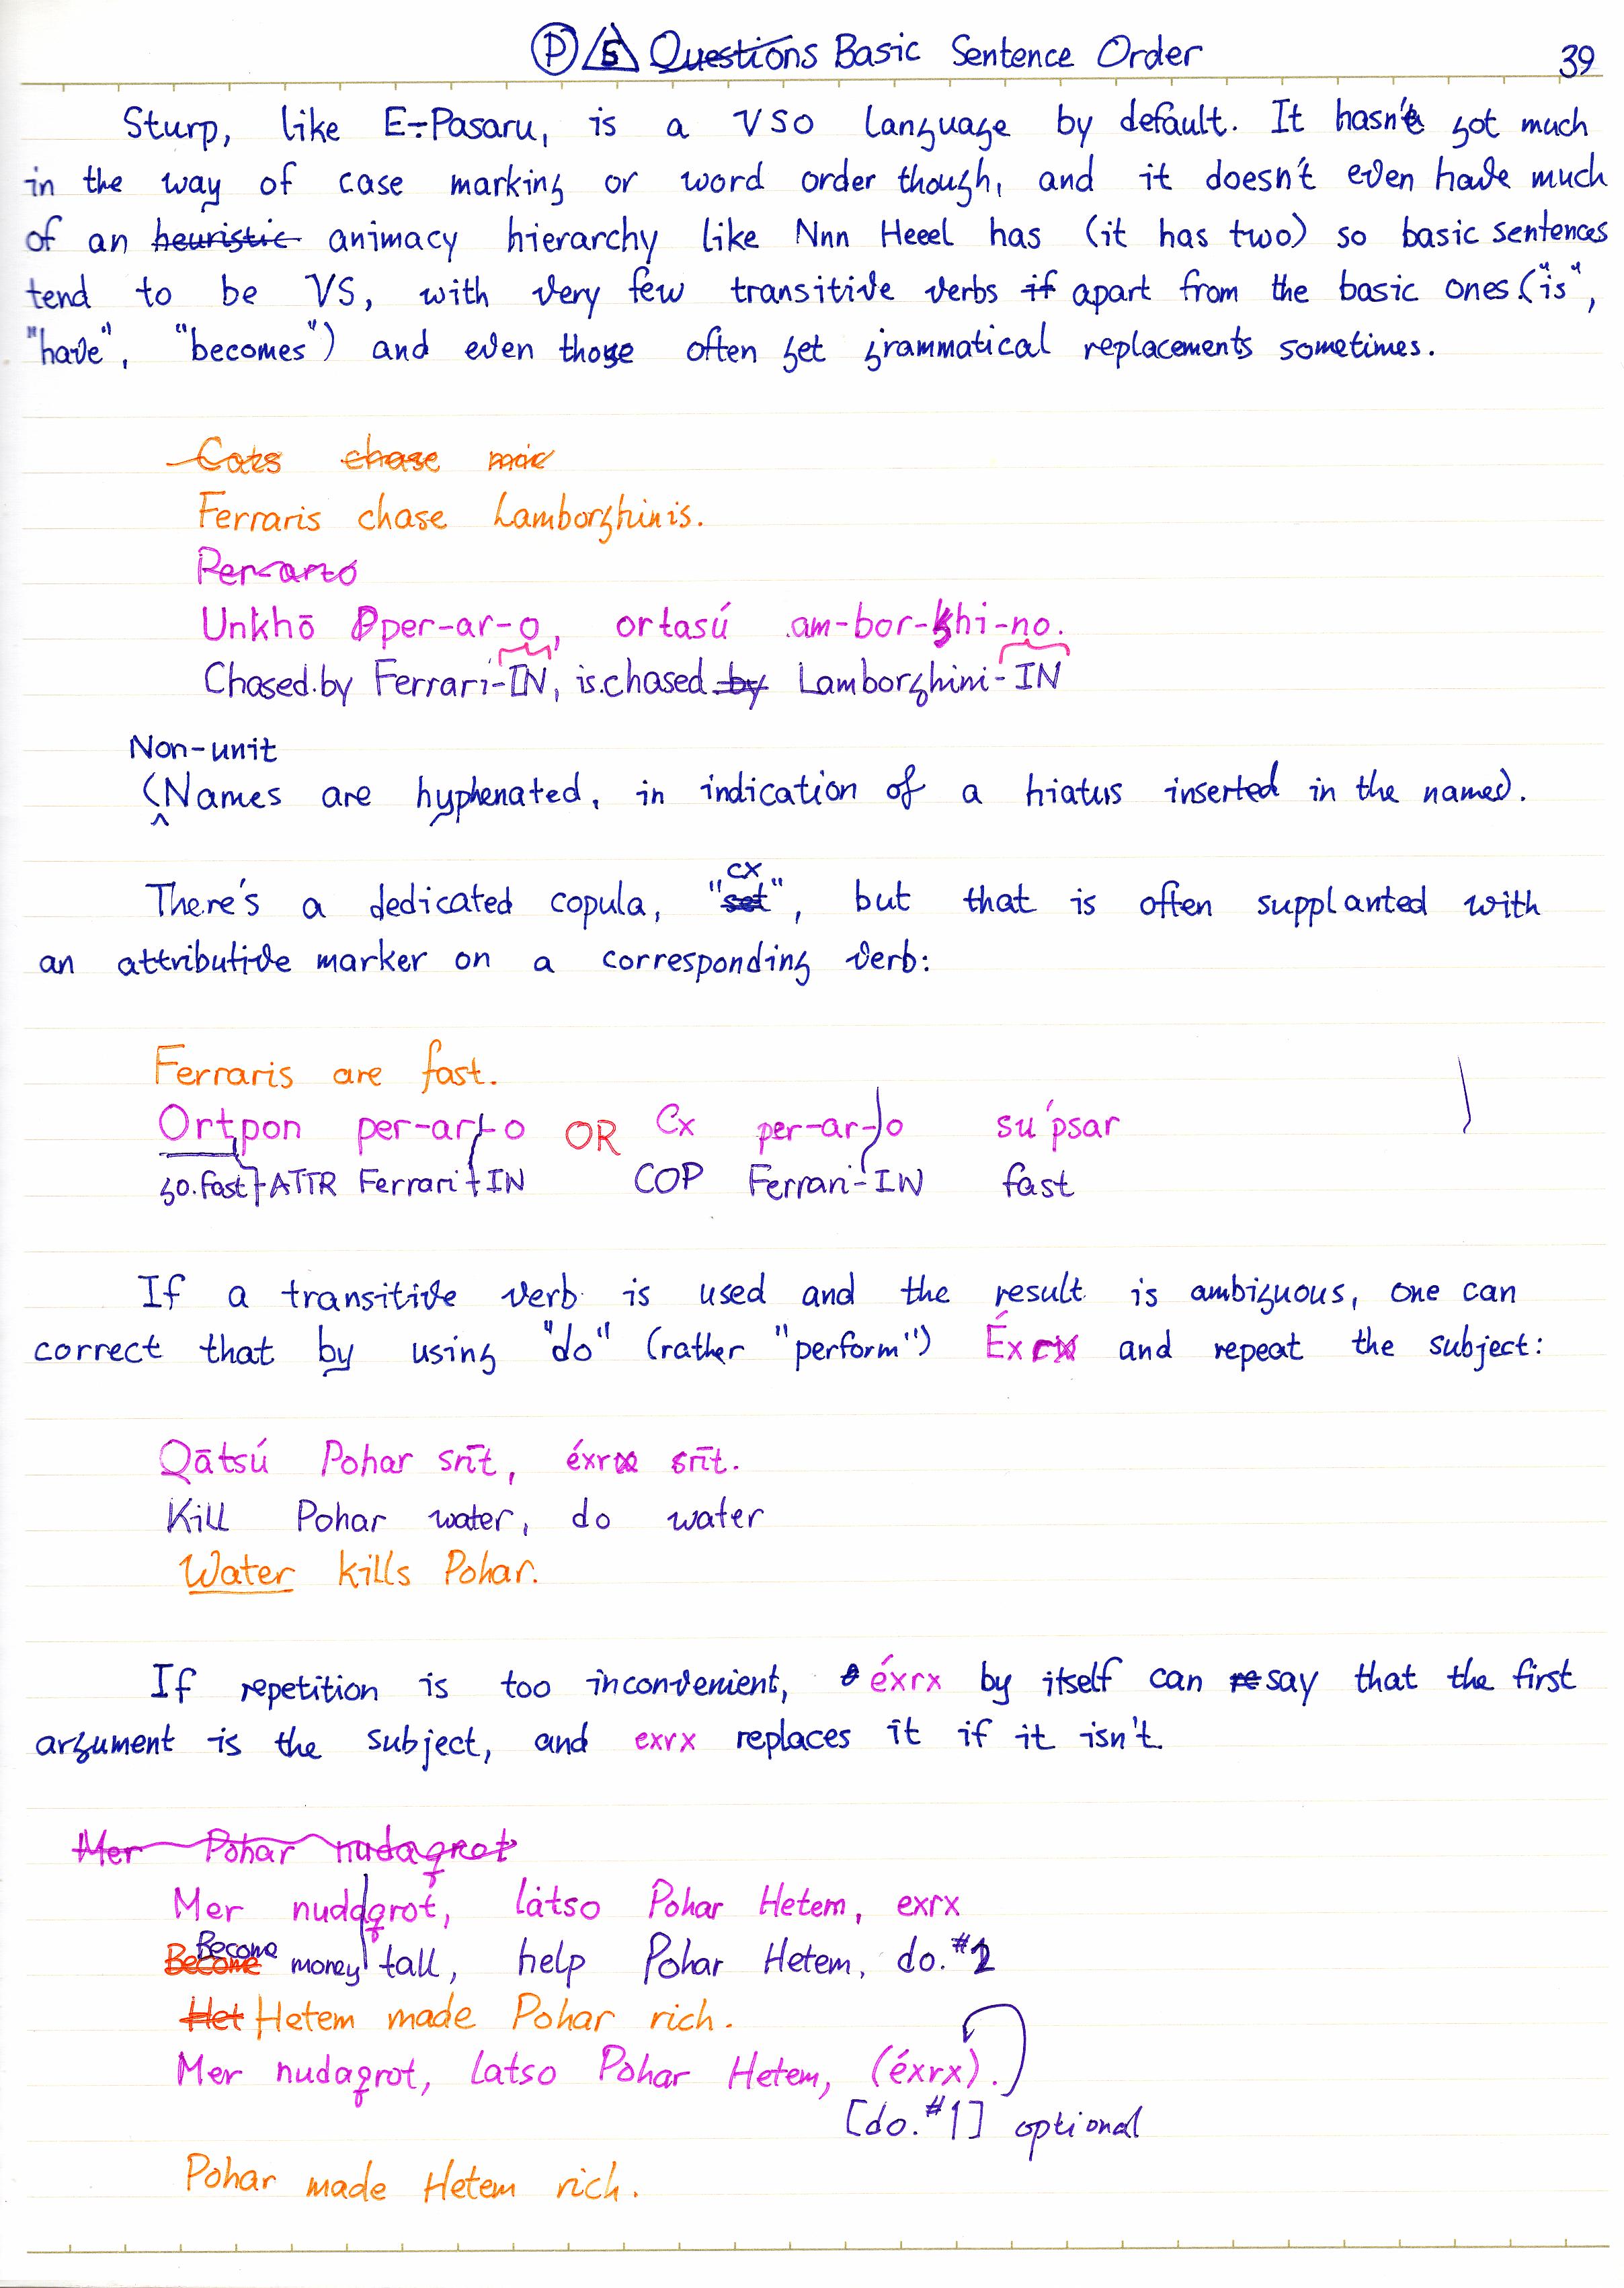 Ⓟ/5 Questions Basic Sentence Order 39
Sturp, like E÷Pasaru, is a VSO language by default. It hasn't got much
in the way of case marking or word order though, and it doesn't even have much
of an heuristic animacy hierarchy like Nnn Heeel has (it has two) so basic sentences
tend to be VS, with very few transitive verbs if apart from the basic ones ("is",
"have", "becomes") and even those often get grammatical replacements sometimes.
Cats chase mic
Ferraris chase Lamborghinis.
Per-aro
Unkhō pper-ar-o, ortasú am-bor-khi-no.
Chased.by Ferrari-IN, is.chased by Lamborghini-IN
Non-unit
(Names are hyphenated, in indication of a hiatus inserted in the name).
cx
There's a dedicated copula, "set", but that is often supplanted with
an attributive marker on a corresponding verb:
Ferraris are fast.
Ortpon per-ar-o OR Cx per-ar-o su'psar
go.fast-ATTR Ferrari-IN COP Ferrari-IN fast
If a transitive verb is used and the result is ambiguous, one can
correct that by using "do" (rather "perform") Éxrx and repeat the subject:
Qātsú Pohar snīt, éxrx snīt.
Kill Pohar water, do water
Water kills Pohar.
If repetition is too inconvenient, éxrx by itself can re say that the first
argument is the subject, and exrx replaces it if it isn't.
Mer Pohar nudaqrot
Mer nudaqrot, látso Pohar Hetem, exrx
Become Become money tall, help Pohar Hetem, do.#2
Het Hetem made Pohar rich.
Mer nudaqrot, latso Pohar Hetem, (éxrx).
[do.#1] optional
Pohar made Hetem rich.